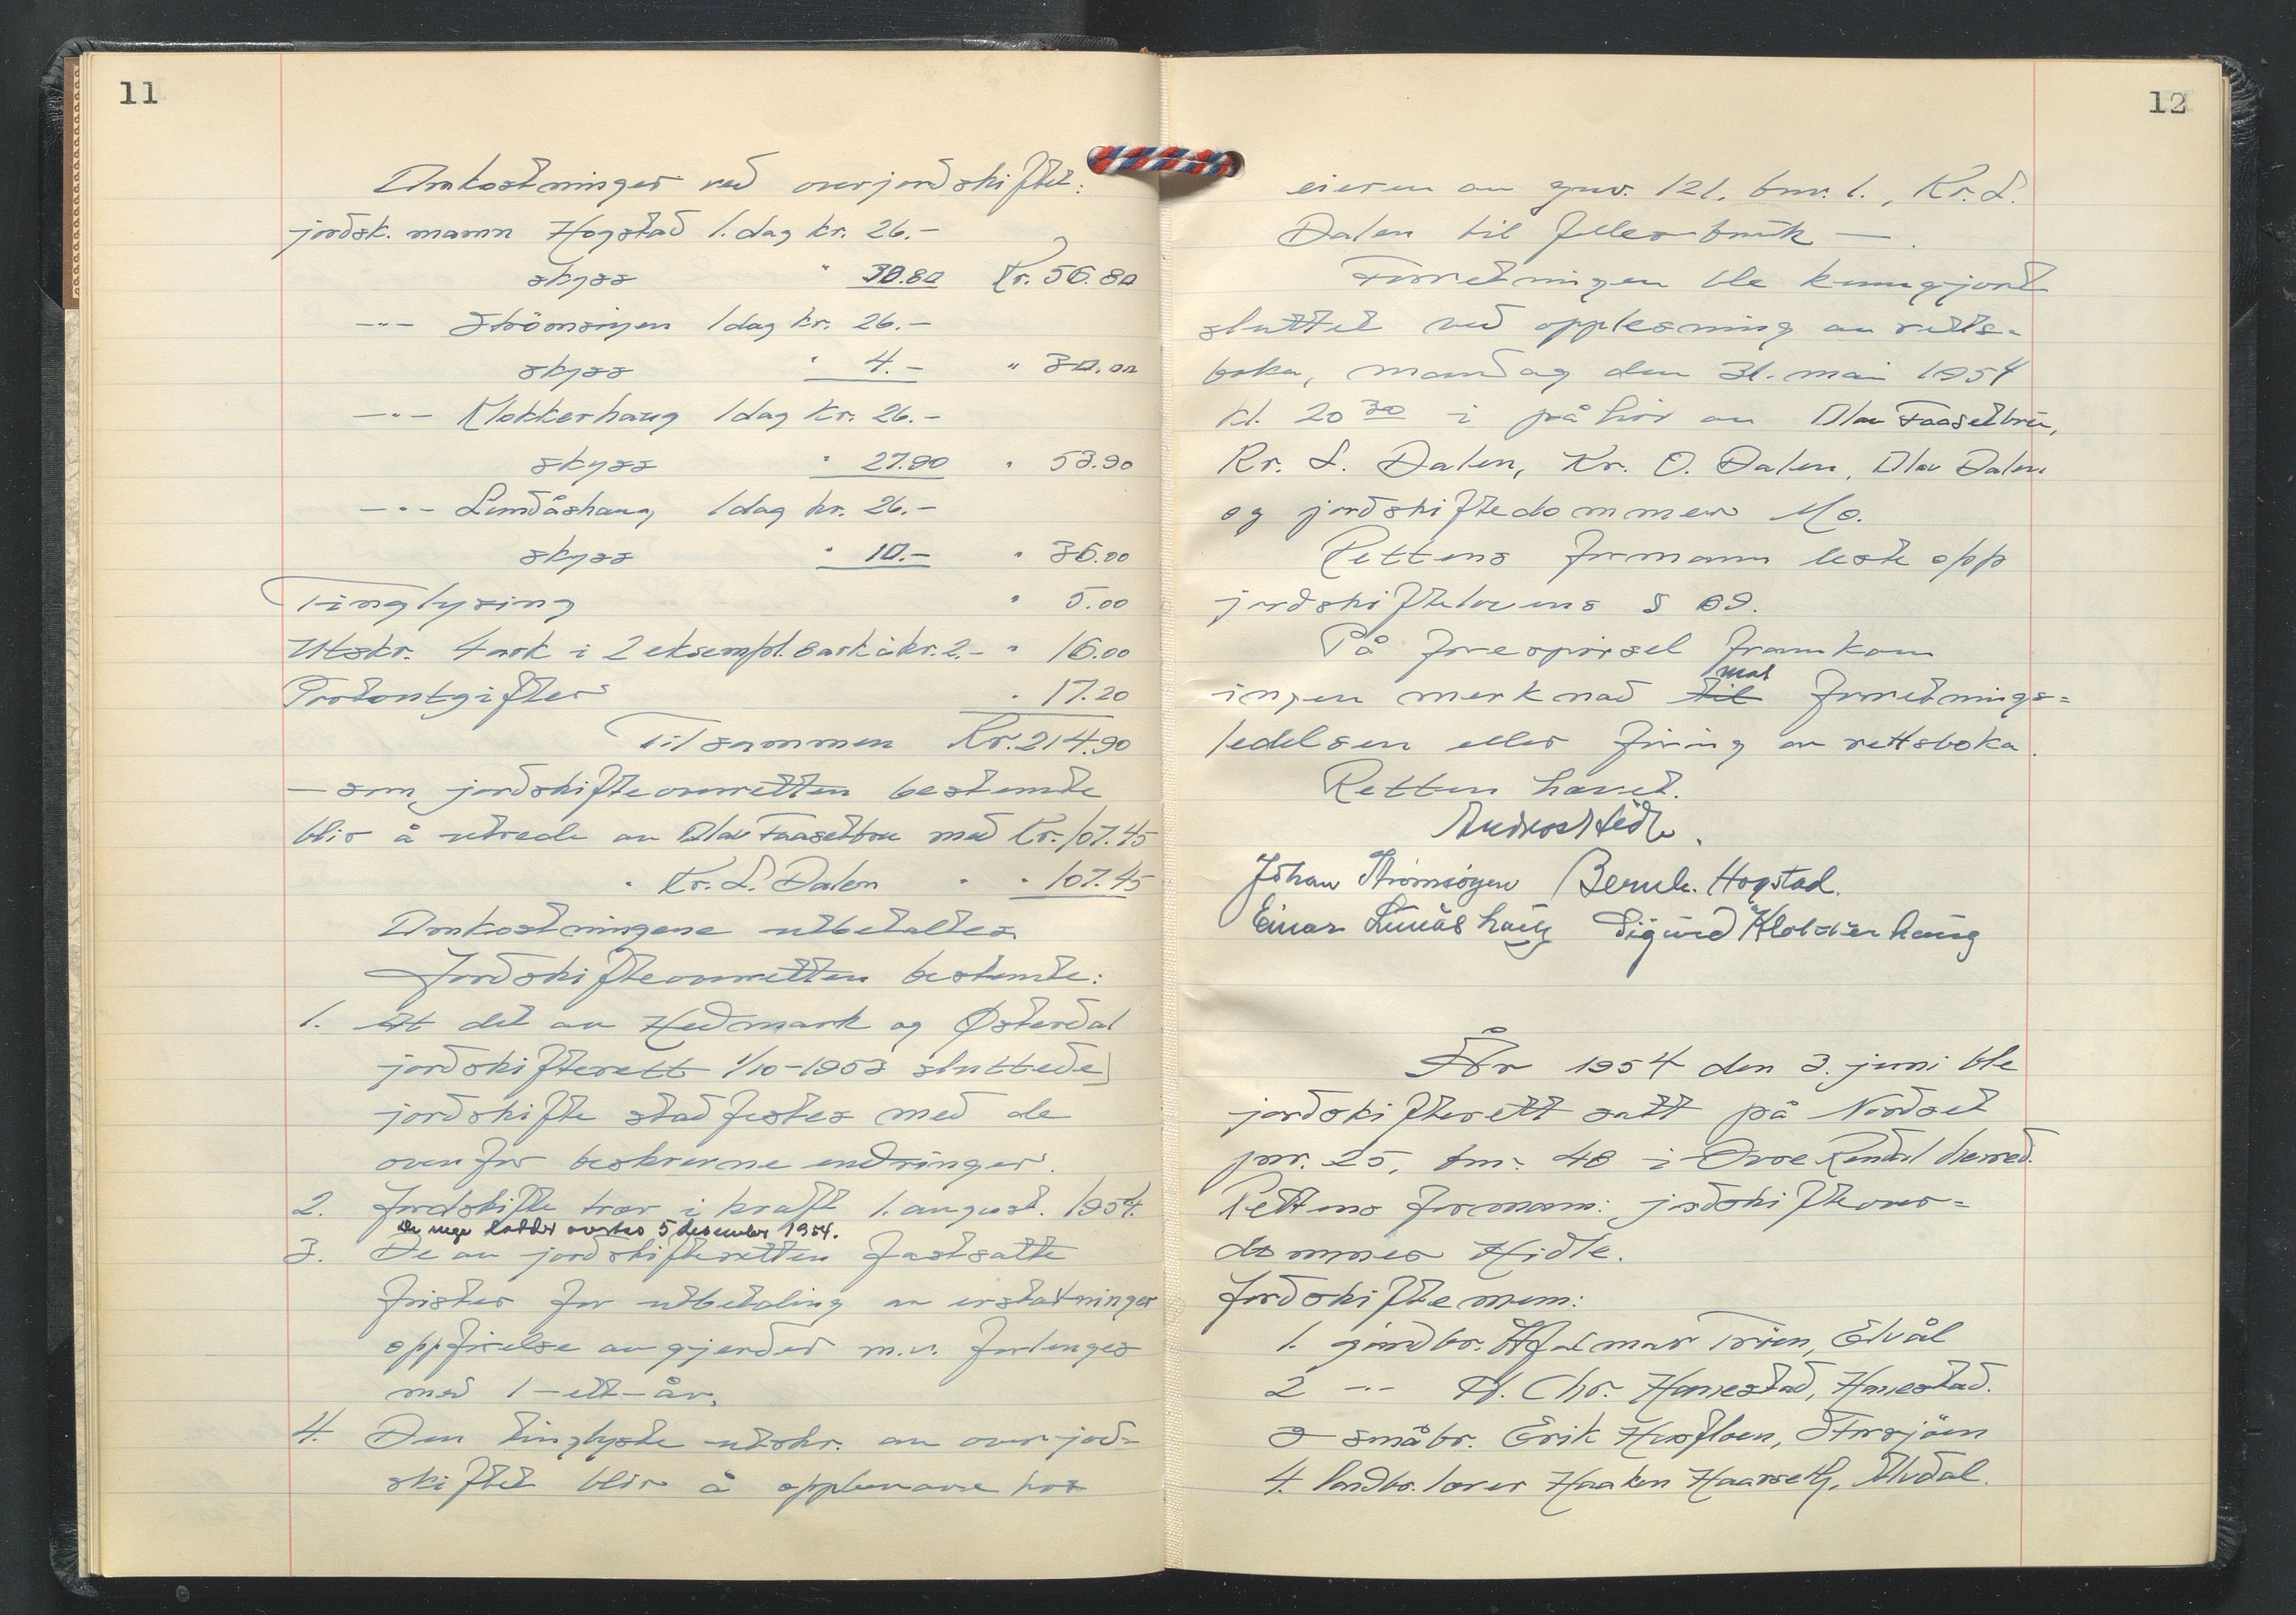 11
Omkostninger ved overjordskiftet:
jordsk. mann Hogstad 1. dag kr. 26.-
skyss " 30.80 Kr. 56.80
-"- Strömsöyen 1 dag kr. 26.-
skyss " 4.- " 30.00
-"- Klokkerhaug 1 dag kr. 26.-
skyss " 27.90 " 53.90
-"- Lundåshaug 1 dag kr. 26.-
skyss " 10.- " 36.00
Tinglysing " 5.00
Utskr. 4 ark i 2 eksempl. 8 ark à kr. 2.- " 16.00
Portoutgifter " 17.20
Tilsammen Kr. 214.90
- som jordskifteoverretten bestemte
blir å utrede av Olav Faasetbru med Kr. 107.45
" Kr. L. Dalen " " 107.45
Omkostningene utbetaltes.
Jordskifteoverretten bestemte:
1. At det av Hedmark og Østerdal
jordskifterett 1/10-1953 sluttede
jordskifte stadfestes med de
ovenfor beskrevne endringer.
2. Jordskifte trær i kraft 1. august. 1954.
De nye lodder overtas 5 desember 1954.
3. De av jordskifteretten fastsatte
frister for utbetaling av erstatninger
oppførelse av gjerder m.v. forlenges
med 1-ett-år.
4. Den tinglyste utskr. av overjord-
skiftet blir å oppbevare hos
12
eieren av gnr. 121. bnr. 1., Kr. L.
Dalen til felles bruk -.
Forretningen ble kunngjort
sluttet ved opplesning av retts-
boka, mandag den 31. mai 1954
kl. 20 30 i påhör av Olav Faasetbru,
Kr. L. Dalen, Kr. O. Dalen, Olav Dalen
og jordskiftedommer Mo.
Rettens formann leste opp
jordskiftelovens § 69.
På forespörsel framkom
mot
ingen merknad til forretnings=
ledelsen eller föring av rettsboka.
Retten hevet.
Johan Strömsöyen Bernh. Hogstad.
Einar Lunåshaug Sigurd Klokkerhaug
År 1954 den 3. juni ble
jordskifterett satt på Nordset
gnr. 25, bnr. 48 i Övre Rendal herred.
Rettens formann: jordskifteover=
dommer Hidle.
Jordskiftemenn:
1. gårdbr. Hjalmar Tröen, Elvål
2 -"- H. Chr. Hanestad, Hanestad.
3 småbr. Erik Husfloen, Storsjöen
4. landbr. lærer Haaken Haarseth, Alvdal.